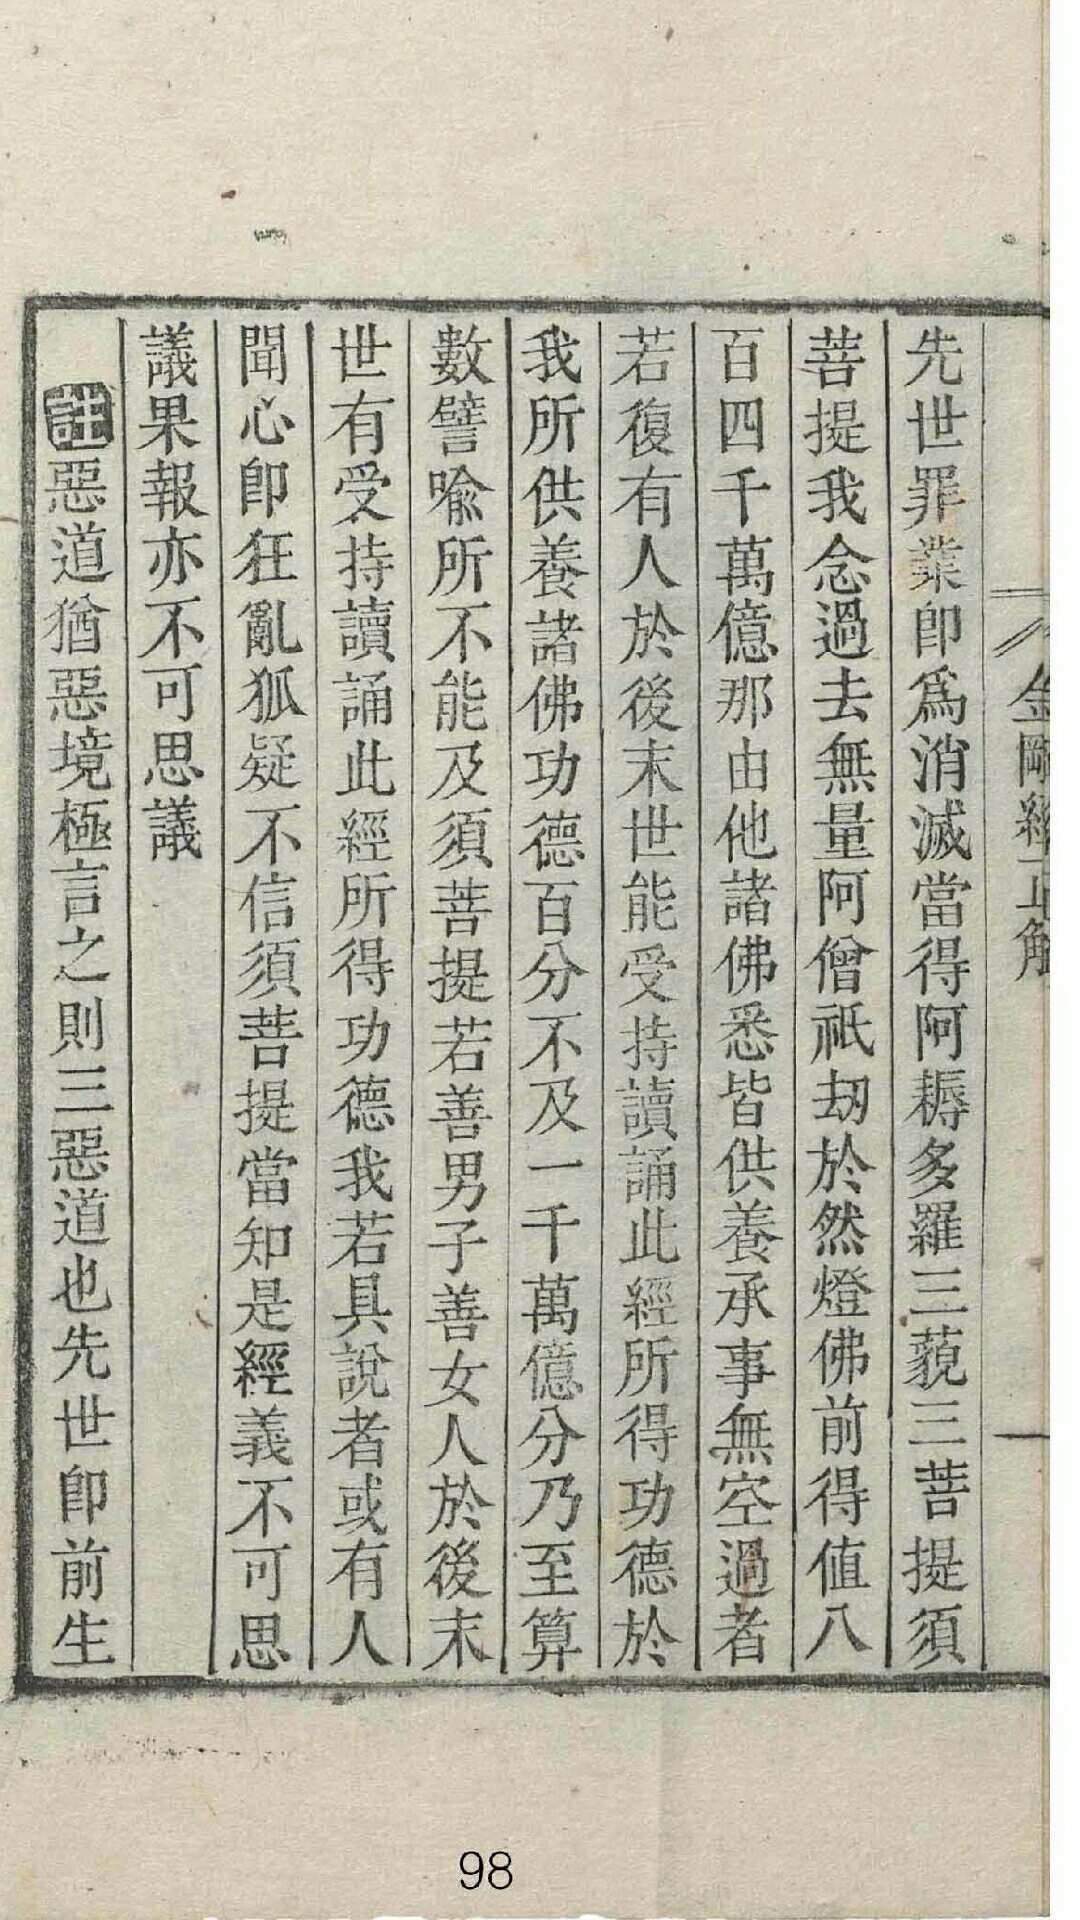 金剛經正解
先世罪業即爲消滅當得阿耨多羅三藐三菩提須
菩提我念過去無量阿僧祇劫於然燈佛前得值八
百四千萬億那由他諸佛悉皆供養承事無空過者
若復有人於後末世能受持讀誦此經所得功德於
我所供養諸佛功德百分不及一千萬億分乃至算
數譬喻所不能及須菩提若善男子善女人於後末
世有受持讀誦此經所得功德我若具說者或有人
聞心即狂亂狐疑不信須菩提當知是經義不可思
議果報亦不可思議
註惡道猶惡境極言之則三惡道也先世即前生
98